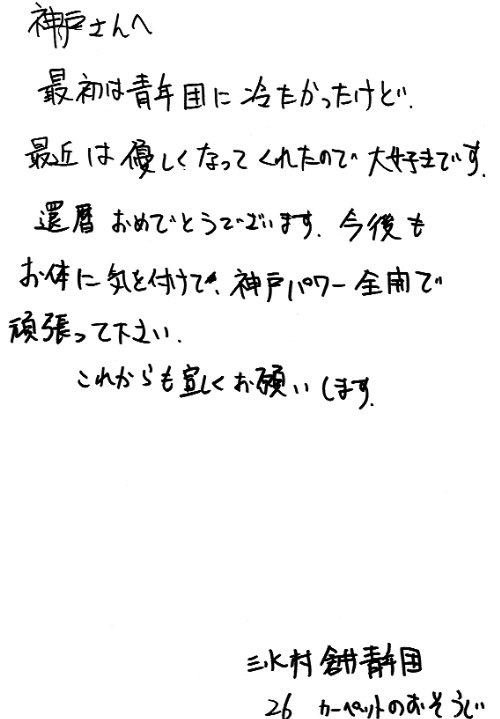 神戸さんへ
最初は青年団に冷たかったけど.
最近は優しくなってくれたので大好きです.
還暦おめでとうございます. 今後も
お体に気を付けて、神戸パワー全開で
頑張って下さい.
これからも宜しくお願いします.
三水村倉井青年団
26 カーペットのおそうじ